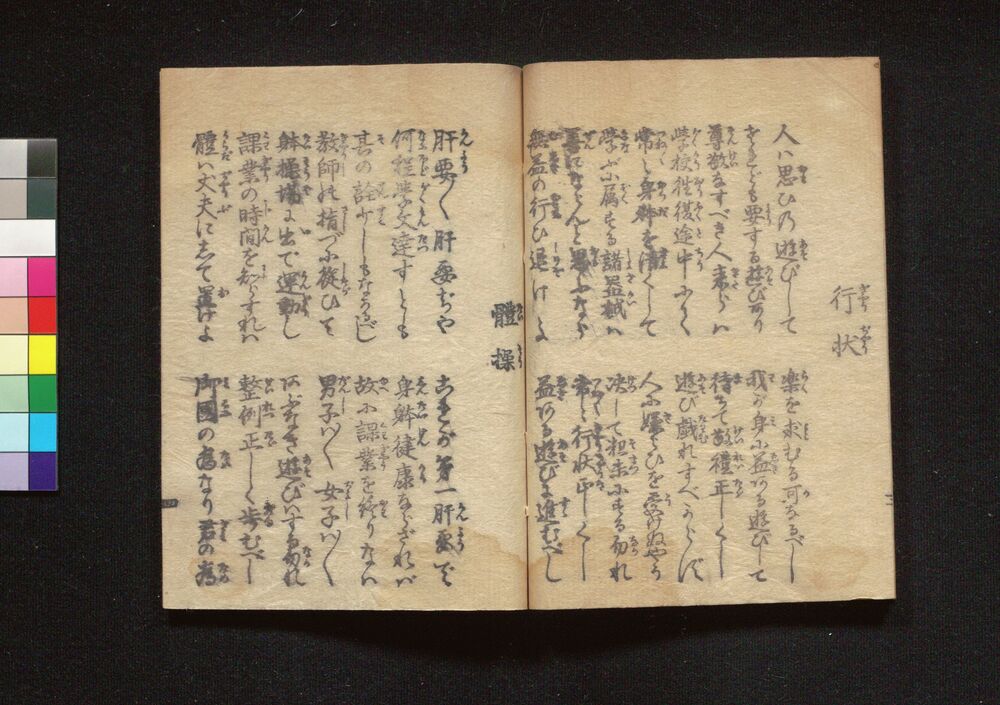 行状
人ハ思ひ乃遊びして
楽を求むる可なるべし
されども要する遊びあり
我が身に益ある遊びして
尊敬なすべき人来らハ
待せて敬禮正しくし
学校往復途中にて
遊び戯れすべからず
常に身躰を清くして
人に嫌ひを受けぬやう
学びに属する諸器械ハ
決して粗末にする勿れ
善にならんと思ふなら
常に行状正しくし
無益の行ひ退けよ
益ある遊びに進むべし
體操
肝要〱肝要ぢや
これが第一肝要ぞ
何程学文達すとも
身躰健康ならざれバ
其の詮少しもなかるべし
故に課業を終りなバ
教師の指づに従ひて
男子ハ〱女子ハ〱
躰操場に出で運動し
あぶなき遊びハする勿れ
課業の時間を知らすれバ
整例正しく歩むべし
體ハ丈夫にして置けよ
御國の為なり君の為